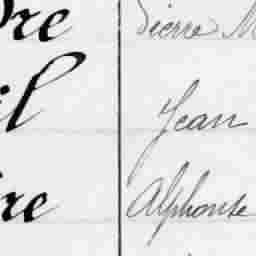 re Pierre M
il Jean
ire Alphonse